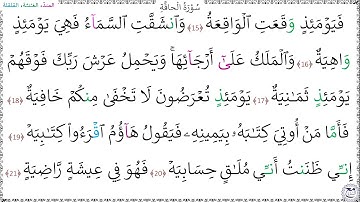 سُورَةُ الْحَاقَّةِ
فَيَوْمَئِذٍ وَقَعَتِ الْوَاقِعَةُ ﴿١٥﴾ وَانْشَقَّتِ السَّمَاءُ فَهِيَ يَوْمَئِذٍ
وَاهِيَةٌ ﴿١٦﴾ وَالْمَلَكُ عَلَىٰ أَرْجَائِهَا وَيَحْمِلُ عَرْشَ رَبِّكَ فَوْقَهُمْ
يَوْمَئِذٍ ثَمَانِيَةٌ ﴿١٧﴾ يَوْمَئِذٍ تُعْرَضُونَ لَا تَخْفَى مِنْكُمْ خَافِيَةٌ ﴿١٨﴾
فَأَمَّا مَنْ أُوتِيَ كِتَابَهُ بِيَمِينِهِ فَيَقُولُ هَاؤُمُ اقْرَءُوا كِتَابِيَهْ ﴿١٩﴾
إِنِّي ظَنَنْتُ أَنِّي مُلَاقٍ حِسَابِيَهْ ﴿٢٠﴾ فَهُوَ فِي عِيشَةٍ رَاضِيَةٍ ﴿٢١﴾